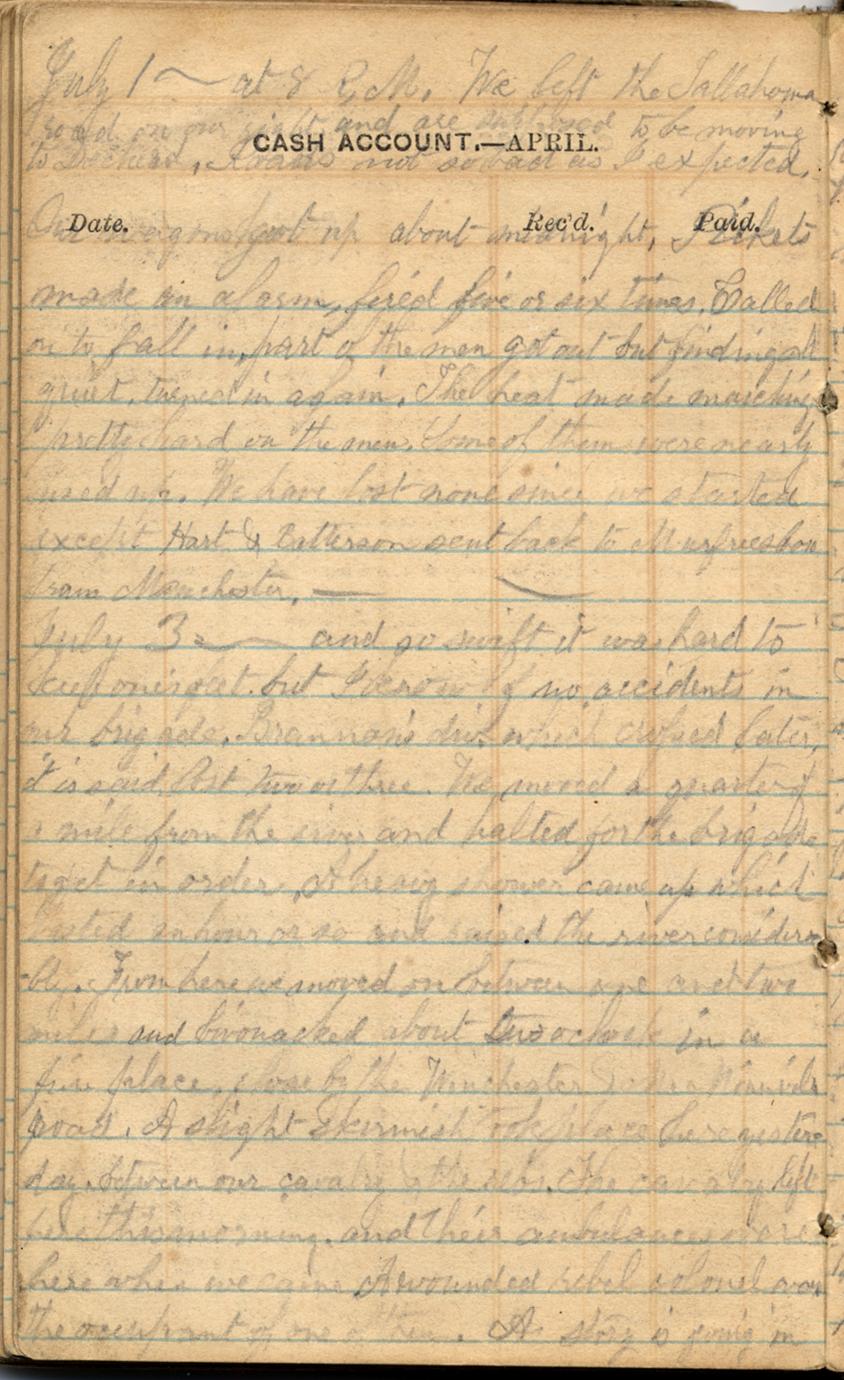 July 1 — at 8 P.M. We left the Tallahoma
road on our right and are supposed to be moving
CASH ACCOUNT.—APRIL.
to Decherd, Roads not so bad as I expected.
Date. Rec'd. Paid.
Our wagons got up about midnight, Pickets
made an alarm, fired five or six times, Called
on to fall in, part of the men got out but finding all
quiet, turned in again. The heat made marching
pretty hard on the men. Some of them were nearly
used up. We have lost none since we started
except Hart & Patterson sent back to Murfreesboro
from Manchester. —
July 3 — and so swift it was hard to
keep one's feet. but I know of no accidents in
our brigade. Brannan's div. which crossed later,
it is said lost two or three. We moved a quarter of
a mile from the river and halted for the brigade
to get in order. A heavy shower came up which
lasted an hour or so and raised the river considera
-bly. From here we moved on between one and two
miles and bivouacked about two oclock in a
fine place, close by the Winchester
road. A slight skirmish took place here yester
day, between our cavalry & the rebs. The cavalry left
here this morning. and their ambulances were
here when we came A wounded rebel colonel was
the occupant of one of them. A story is going in